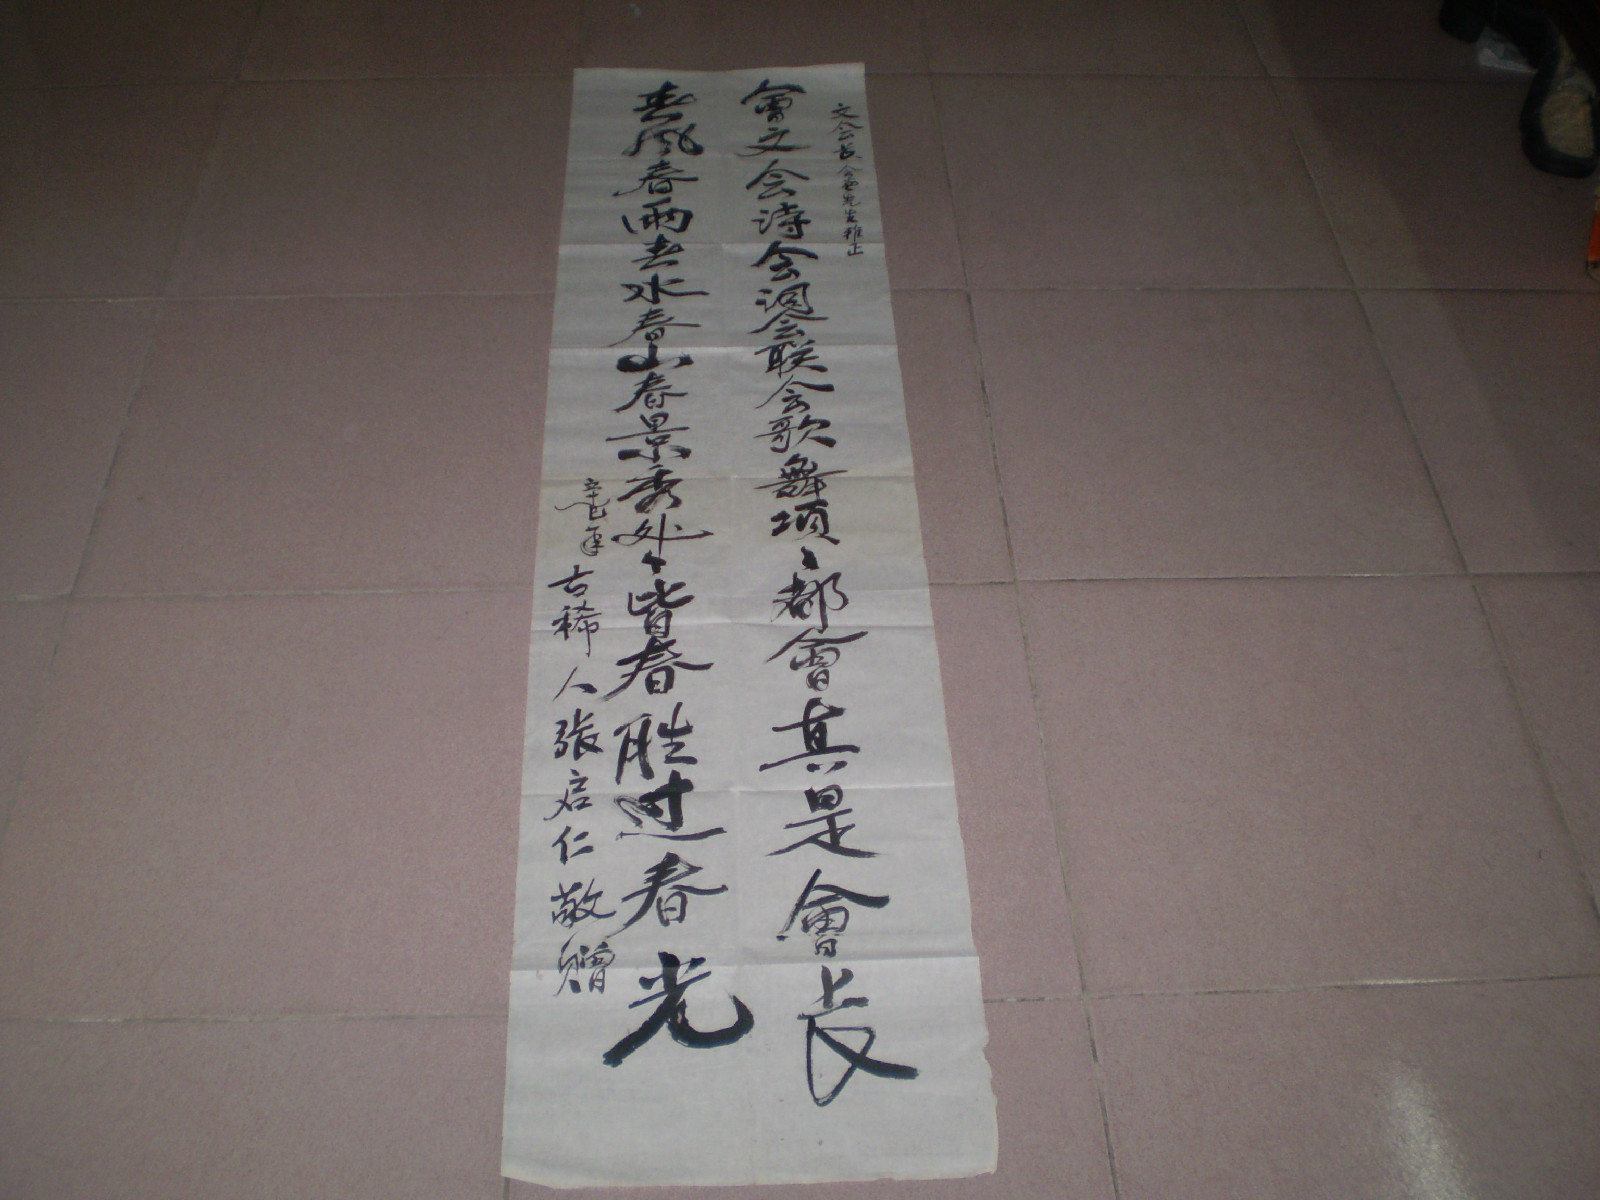 文会会长会春先生雅正
會文会诗会词会联会歌舞项〻都會真是會长
春风春雨春水春山春景秀处〻皆春胜过春光
年古稀人张启仁敬赠